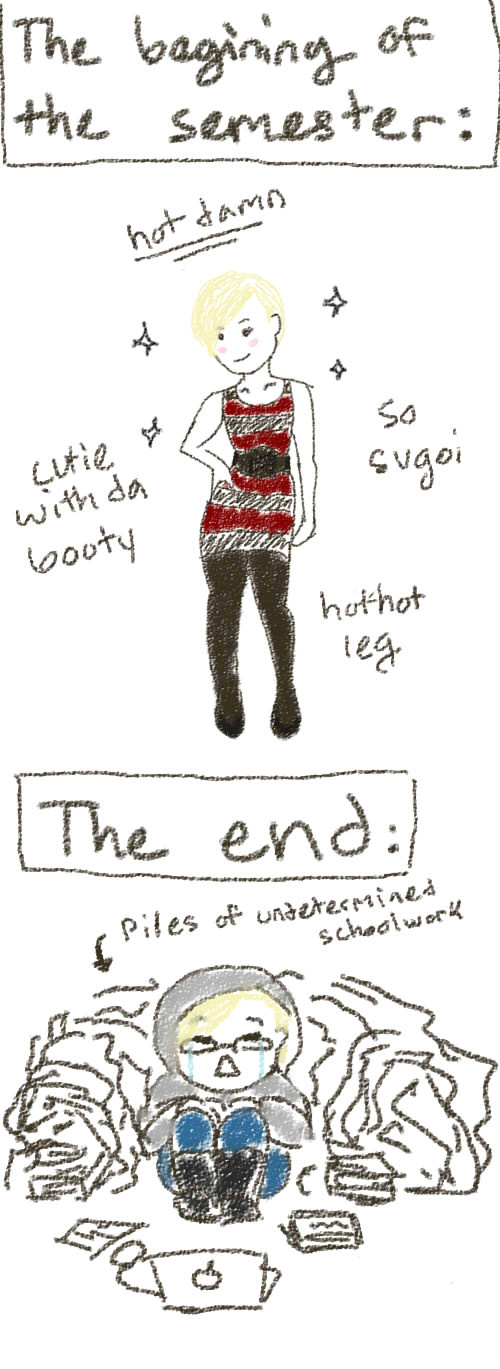 The bagining of
the semester:
hot damn
so
sugoi
cutie
with da
booty
hot-hot
leg
The end:
Piles of undetermined
schoolwork